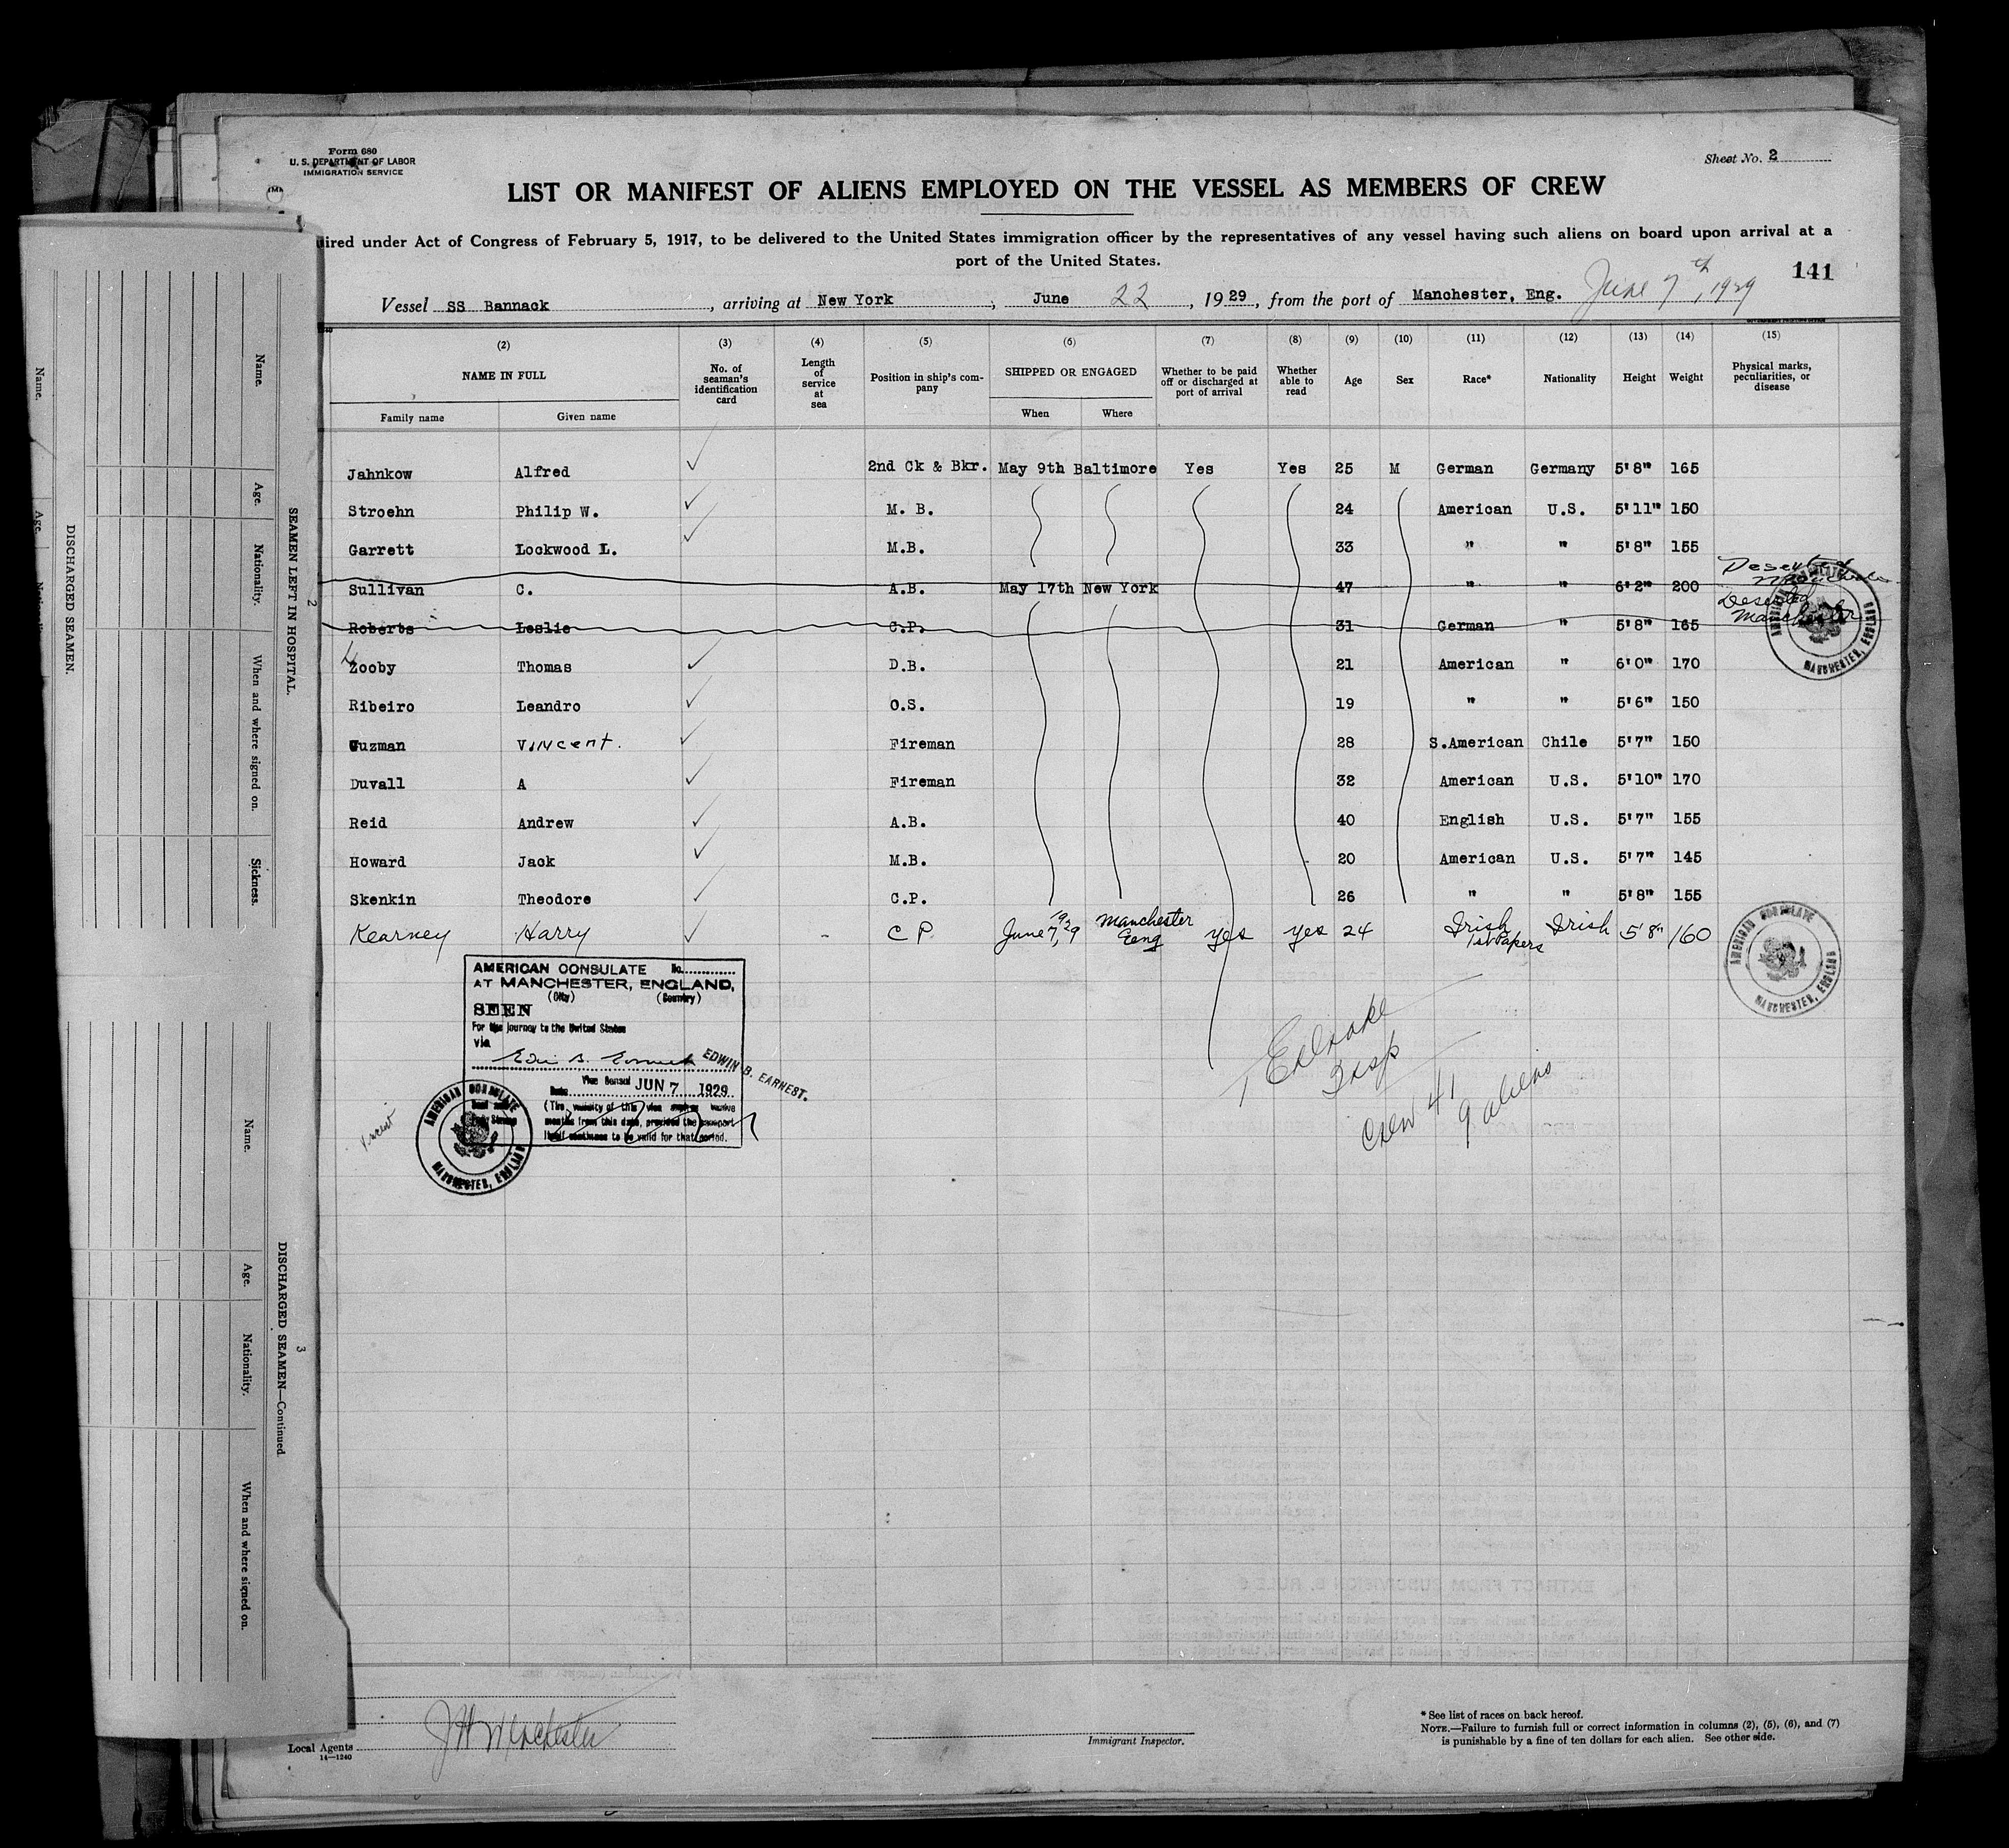 Form 680
U. S. DEPARTMENT OF LABOR
IMMIGRATION SERVICE
Sheet No. 2
LIST OR MANIFEST OF ALIENS EMPLOYED ON THE VESSEL AS MEMBERS OF CREW
uired under Act of Congress of February 5, 1917, to be delivered to the United States immigration officer by the representatives of any vessel having such aliens on board upon arrival at a
port of the United States.
141
Vessel SS Bannack, arriving at New York, June 22, 1929, from the port of Manchester, Eng. June 7th, 1929
(2) (3) (4) (5) (6) (7) (8) (9) (10) (11) (12) (13) (14) (15)
NAME IN FULL No. of seaman's identification card Length of service at sea Position in ship's company SHIPPED OR ENGAGED Whether to be paid off or discharged at port of arrival Whether able to read Age Sex Race* Nationality Height Weight Physical marks, peculiarities, or disease
Family name Given name When Where
Jahnkow Alfred 2nd Ck & Bkr. May 9th Baltimore Yes Yes 25 M German Germany 5'8" 165
Stroehn Philip W. M. B. 24 American U.S. 5'11" 150
Garrett Lockwood L. M.B. 33 " " 5'8" 155
Sullivan C. A.B. May 17th New York 47 " " 6'2" 200 Deserted Manchester
Roberts Leslie C.P. 31 German " 5'8" 165 Deserted Manchester
Zooby Thomas D.B. 21 American " 6'0" 170
Ribeiro Leandro O.S. 19 " " 5'6" 150
Guzman Vincent. Fireman 28 S.American Chile 5'7" 150
Duvall A Fireman 32 American U.S. 5'10" 170
Reid Andrew A.B. 40 English U.S. 5'7" 155
Howard Jack M.B. 20 American U.S. 5'7" 145
Skenkin Theodore C.P. 26 " " 5'8" 155
Kearney Harry - C P June 7, 1929 Manchester Eng yes yes 24 Irish 1st Papers Irish 5'8" 160
AMERICAN CONSULATE No.
AT MANCHESTER, ENGLAND,
(City) (Country)
SEEN
For the journey to the United States
via
EDWIN B. EARNEST.
Vice Consul
Date JUN 7 1929
(The validity of this visa
months from this date, provided the passport
itself continues to be valid for that period.
AMERICAN CONSULATE
MANCHESTER, ENGLAND
AMERICAN CONSULATE
MANCHESTER, ENGLAND
AMERICAN CONSULATE
MANCHESTER, ENGLAND
Vincent
Insp
Crew 41
9 aliens
Local Agents
14—1240
Immigrant Inspector.
* See list of races on back hereof.
NOTE.—Failure to furnish full or correct information in columns (2), (5), (6), and (7)
is punishable by a fine of ten dollars for each alien. See other side.
2
SEAMEN LEFT IN HOSPITAL.
Name. Age. Nationality. When and where signed on. Sickness.
DISCHARGED SEAMEN.
Name. Age. Nationality.
3
DISCHARGED SEAMEN—Continued.
Name. Age. Nationality. When and where signed on.